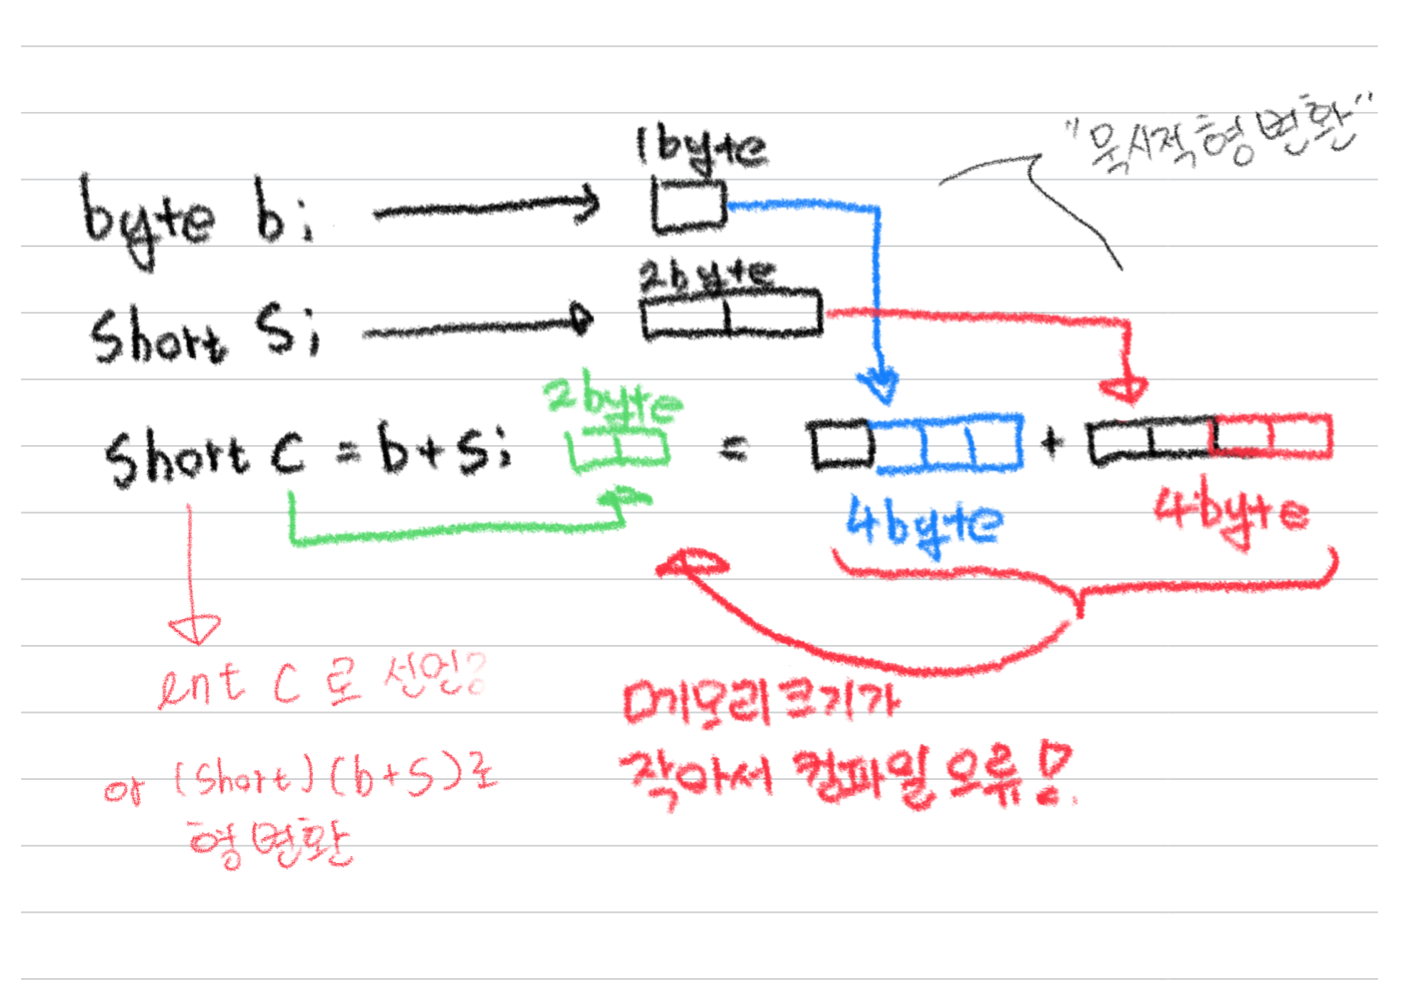 "묵시적형변환"
1byte
byte b;
2byte
short s;
2byte
short c = b+s;
=
+
4byte
4byte
int c 로 선언?
or (short)(b+s)로
형변환
메모리크기가
작아서 컴파일 오류!